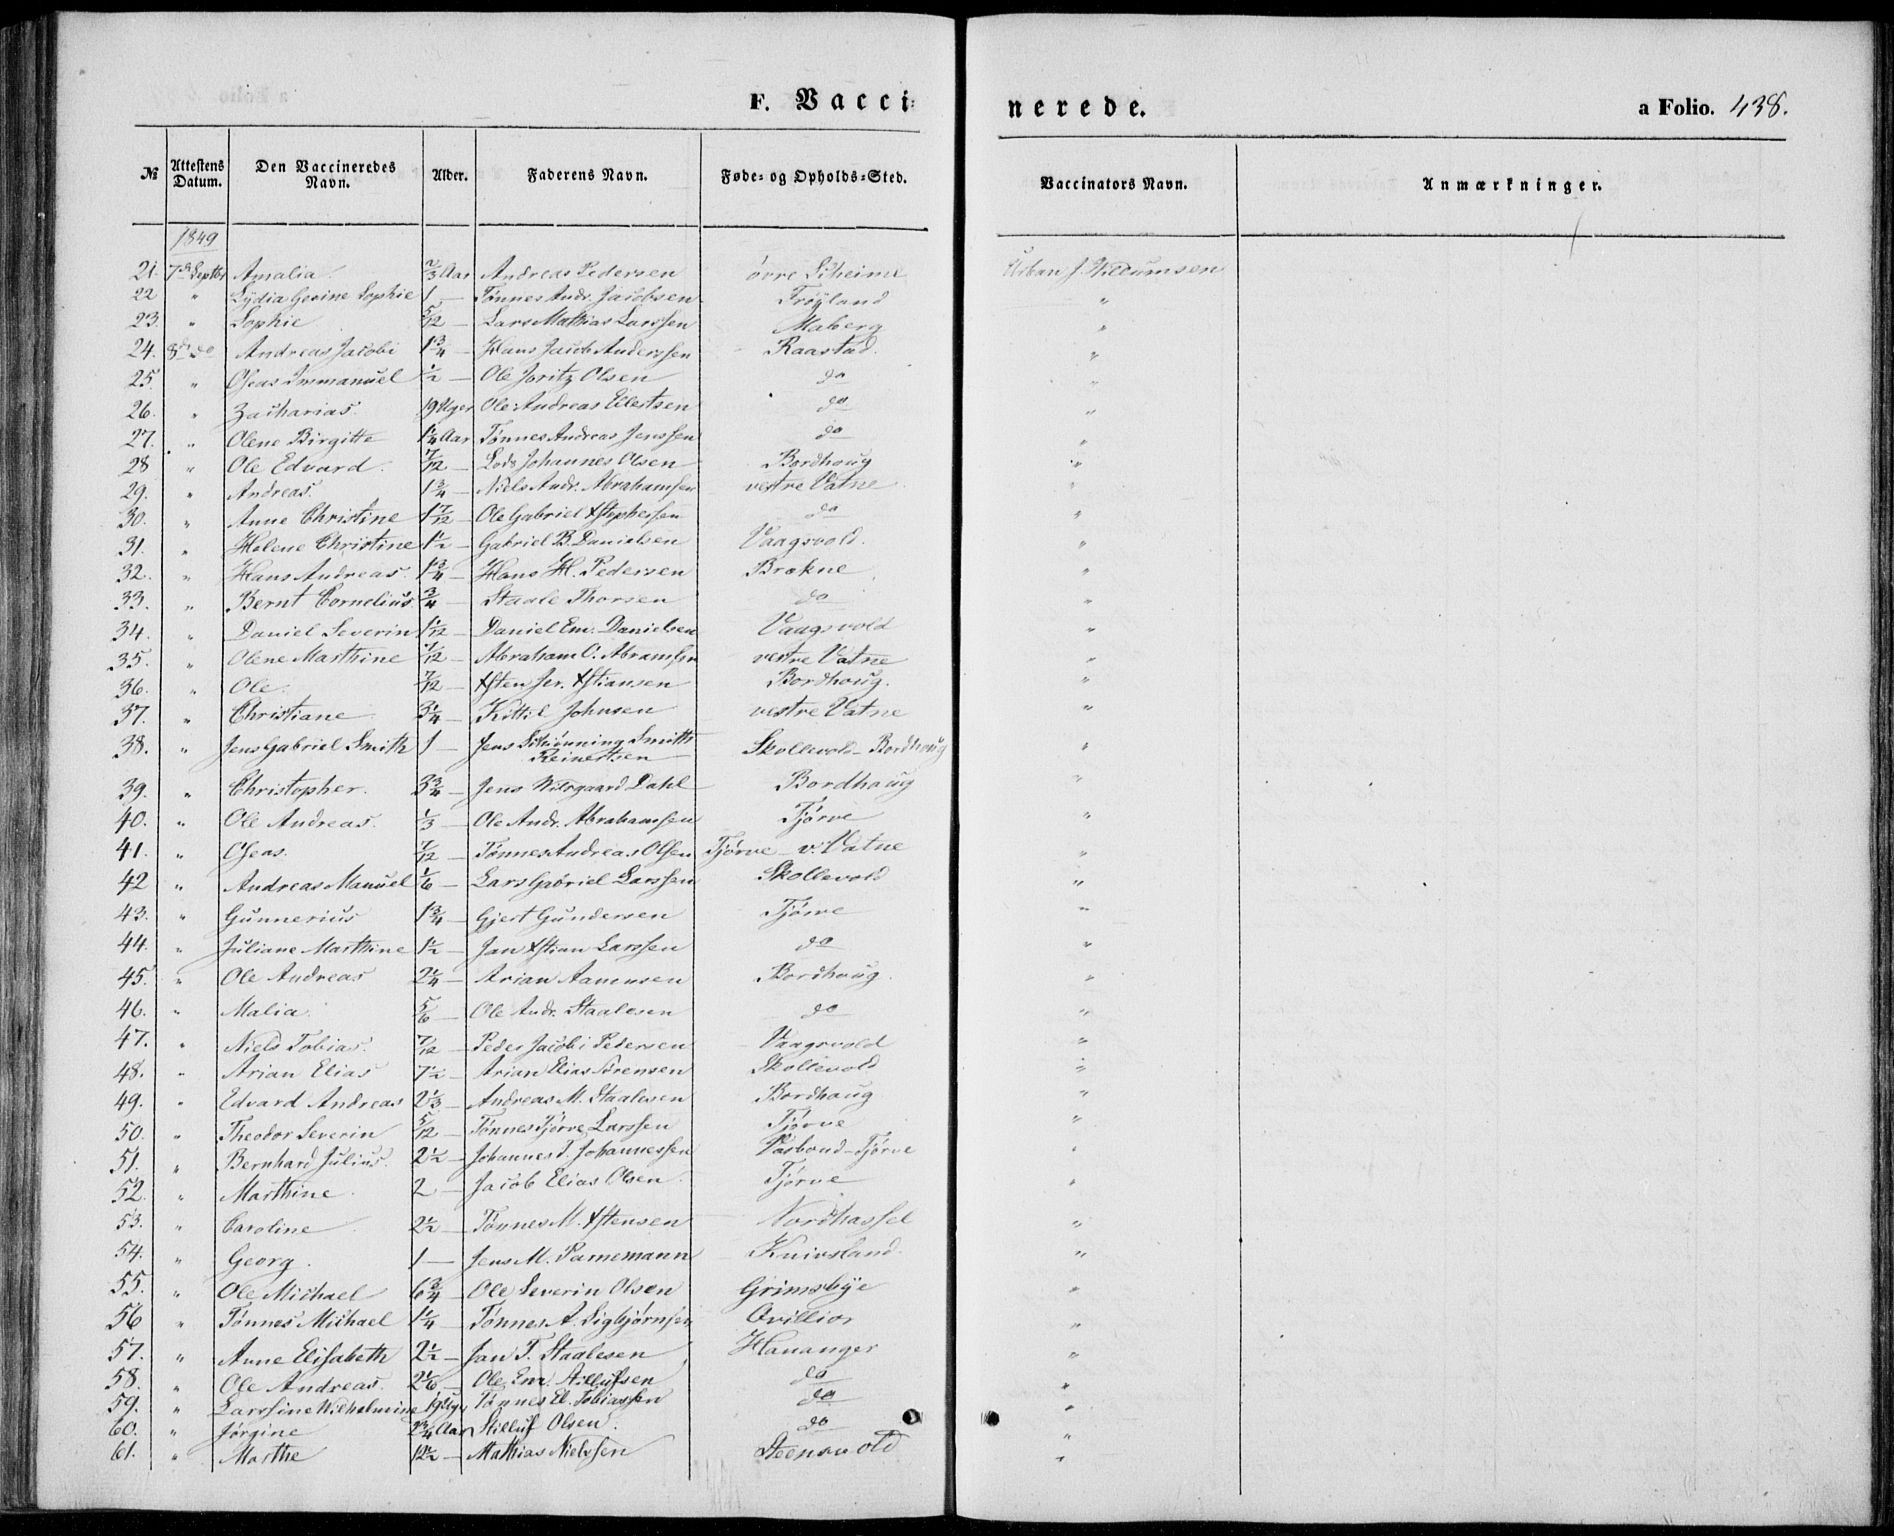 F. Vacci=
nerede.
a Folio. 438.
№ Attestens Datum. Den Vaccineredes Navn. Alder. Faderens Navn. Føde- og Opholds-Sted. Vaccinators Navn. Anmærkninger.
1849
21. 7de Septbr Amalia 2/3 Aar Andreas Pedersen övre Skeime J. Willumsen
22 " Lydia Gurine Sophie 1 — Tønnes Andr. Jacobsen Fröyland "
23. " Sophie 5/12 — Lars Mathias Larssen Maberg "
24. 8de do Andreas Jacobi 1 3/4 — Hans Jacob Anderssen Raastad. "
25. " Oseas Immanuel 1/2 — Ole Joritz Olsen do "
26. " Zacharias. 19 Uger Ole Andreas Ellertsen do "
27. " Olene Birgitte 1 1/4 Aar Tønnes Andreas Jenssen do "
28 " Ole Edvard. 7/12 — Lods Johannes Olsen Bordhoug "
29. " Andreas. 1 3/4 — Niels Andr. Abrahamsen vestre Vatne "
30. " Anne Christine 1 7/12 — Ole Gabriel do "
31. " Helene Christine 1 1/2 — Gabriel B. Danielsen Vaagsvold. "
32. " Hans Andreas 1 3/4 — Hans H. Pedersen Brekne "
33. " Bernt Cornelius 3/4 — Staale Thorsen do "
34. " Daniel Severin 1 1/12 — Daniel Em. Danielsen Vaagsvold "
35. " Olene Marthine 7/12 — Abraham O. Abramsen vestre Vatne "
36. " Ole. 7/12 — Xsten Ser. Xstiansen Bordhoug. "
37. " Christiane 3 1/4 — Kittil Johnsen vestre Vatne "
38. " Jens Gabriel Smith 1 — Jens Schiønning Smith
Reinertsen Skollevold — Bordhoug "
39. " Christopher. 3 3/4 — Jens Dahl Bordhoug "
40. " Ole Andreas. 1/3 — Ole Andr. Abrahamsen Tjørve "
41. " Oseas. 7/12 — Tønnes Andreas Olsen Tjørve — v. Vatne "
42 " Andreas Manuel 1/6 — Lars Gabriel Larssen Skollevold "
43. " Gunnerius 1 3/4 — Gjert Gundersen Tjørve "
44. " Juliane Marthine 1 1/2 — Jan Xstian Larssen do "
45. " Ole Andreas 2 1/4 — Arian Aanensen Bordhoug "
46. " Malia. 5/6 — Ole Andr. Staalesen do "
47. " Niels Tobias. 7/12 — Peder Jacobi Pedersen Vaagsvold "
48. " Arian Elias 7 1/2 — Arian Elias Sørensen Skollevold "
49. " Edvard Andreas 2 1/3 — Andreas M. Staalesen Bordhoug "
50. " Theodor Severin 5/12 — Tønnes Tjørve Larssen Tjørve "
51. " Bernhard Julius. 2 1/2 — Johannes T. Johannessen Vasbond — Tjørve "
52. " Marthine 2 — Jacob Elias Olsen Tjørve "
53. " Caroline 2 1/2 — Tønnes M. Xstensen Nordhassel "
54. " Georg 1 — Jens M. Parnemann Knivsland. "
55. " Ole Michael 6 3/4 — Ole Severin Olsen Grimsbye "
56 " Tønnes Michael 1 1/4 — Tønnes A. Sigbjørnsen Ovillier "
57. " Anne Elisabeth 2 1/2 — Jan T. Staalesen Hananger "
58. " Ole Andreas. 2 1/6 — Ole Em. Stillufsen do "
59. " Larssine Wilhelmine 19 Uger Tønnes El. Tobiassen do "
60. " Jørgine 2 3/4 Aar Stilluf Olsen. do "
61. " Marthe 12 1/2 — Mathias Nielssen Steensvold "